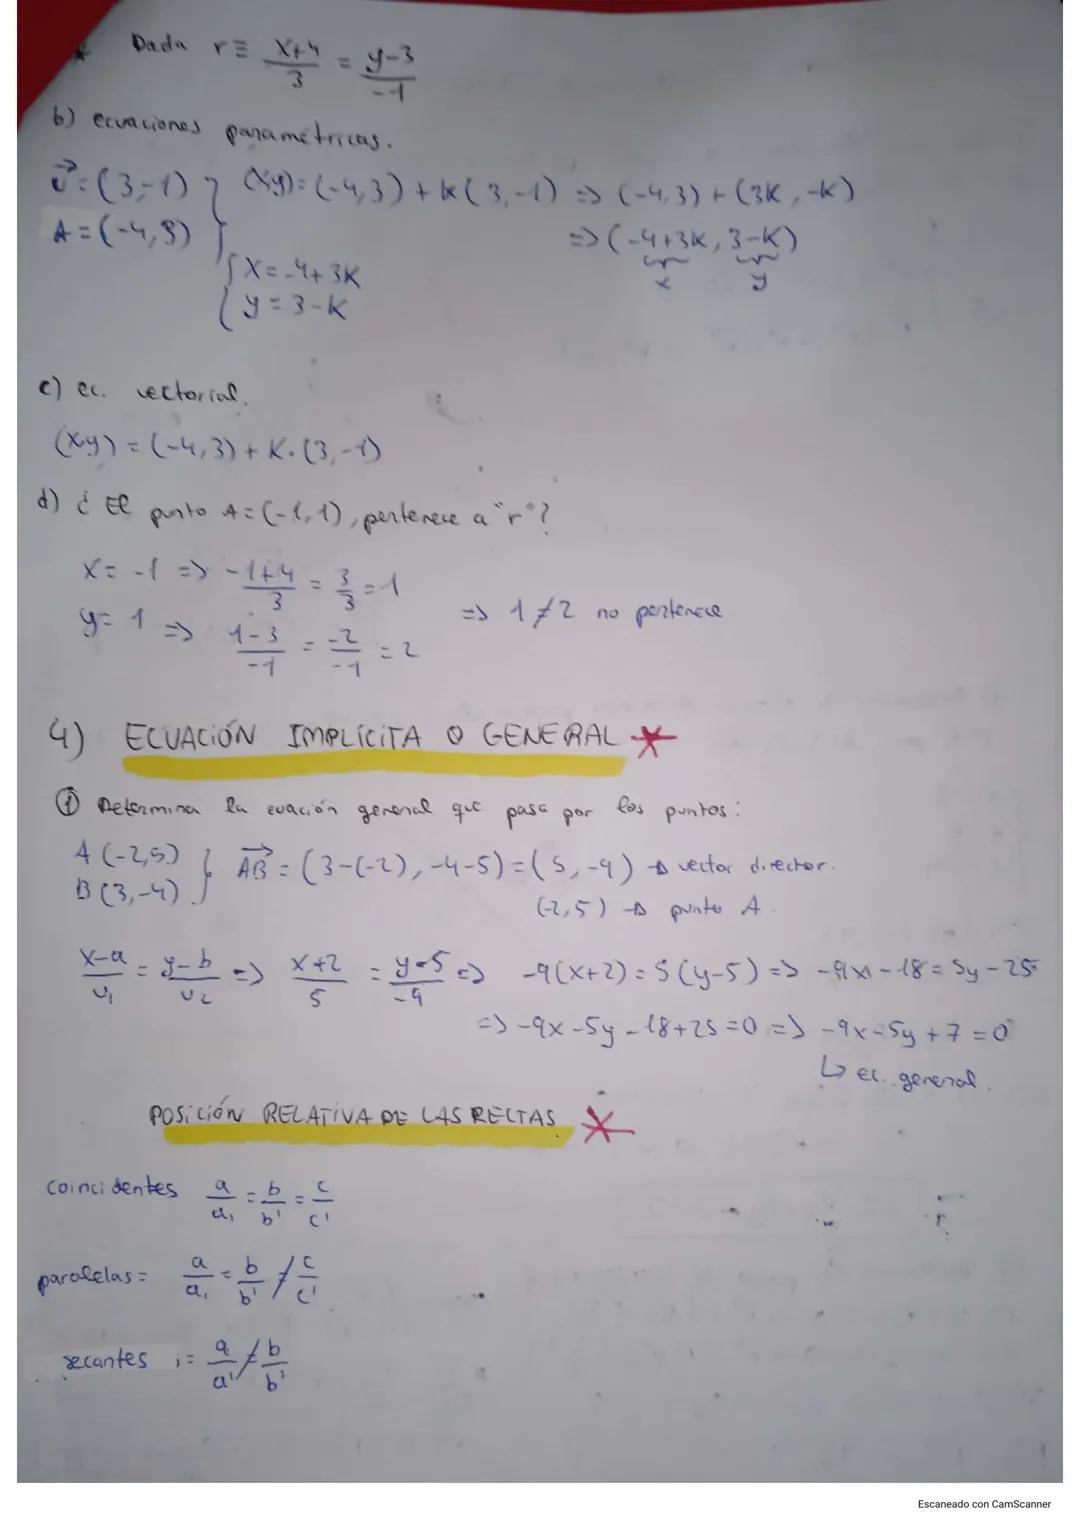 * Dada r ≡ x+4/3 = y-3/-1
b) ecuaciones paramétricas.
v⃗ = (3,-1) } (x,y) = (-4,3) + k(3,-1) => (-4,3) + (3k, -k)
A = (-4,3) => (-4+3k, 3-k)
x y
{ x = -4+3k
{ y = 3-k
c) ec. vectorial.
(x,y) = (-4,3) + K·(3,-1)
d) ¿ El punto A = (-1,1), pertenece a "r"?
x = -1 => -1+4/3 = 3/3 = 1
=> 1 ≠ 2 no pertenece
y = 1 => 1-3/-1 = -2/-1 = 2
4) ECUACIÓN IMPLÍCITA O GENERAL *
① Determina la evación general que pasa por los puntos:
A (-2,5) } AB⃗ = (3-(-2), -4-5) = (5, -9) → vector director.
B (3,-4) (-2,5) → punto A.
x-a/v₁ = y-b/v₂ => x+2/5 = y-5/-9 => -9(x+2) = 5(y-5) => -9x-18 = 5y-25
=> -9x-5y-18+25=0 => -9x-5y+7=0
↳ ec. general.
POSICIÓN RELATIVA DE LAS RECTAS *
coincidentes a/a₁ = b/b' = c/c'
paralelas = a/a₁ = b/b' ≠ c/c'
secantes := a/a' ≠ b/b'
Escaneado con CamScanner